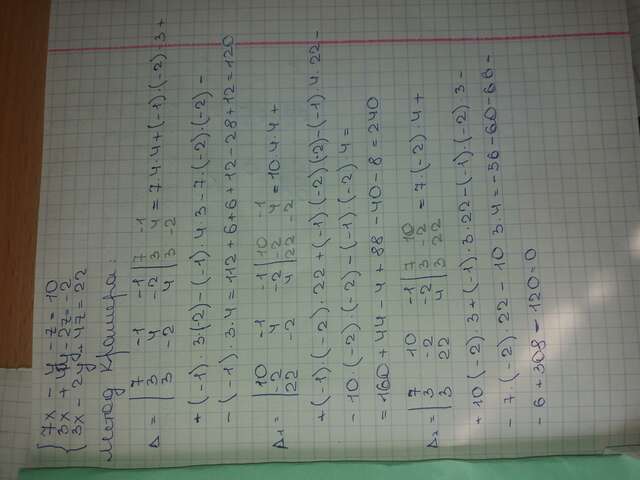 7x - y - z = 10
3x + 4y - 2z = -2
3x - 2y + 4z = 22
Метод Крамера:
Δ = | 7 -1 -1 | 7 -1
3 4 -2 | 3 4
3 -2 4 | 3 -2
= 7·4·4+(-1)·(-2)·3+
+(-1)·3(-2)-(-1)·4·3-7·(-2)·(-2)-
-(-1)·3·4=112+6+6+12-28+12=120
Δ1 = | 10 -1 -1 | 10 -1
-2 4 -2 | -2 4
22 -2 4 | 22 -2
= 10·4·4+
+(-1)·(-2)·22+(-1)(-2)(-2)-(-1)·4·22-
-10·(-2)·(-2)-(-1)(-2)4=
=160+44-4+88-40-8=240
Δ2 = | 7 10 -1 | 7 10
3 -2 -2 | 3 -2
3 22 4 | 3 22
= 7·(-2)·4+
+10(-2)·3+(-1)·3·22-(-1)·(-2)·3-
-7·(-2)·22-10·3·4=-56-60-66-
-6+308-120=0